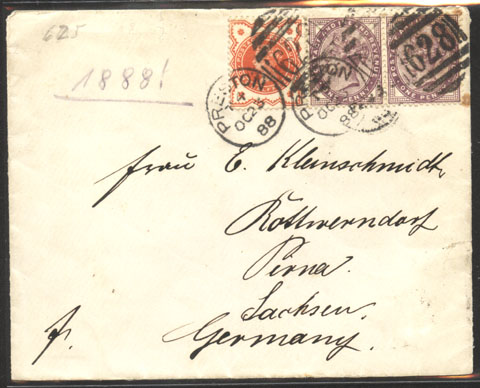 625
1888!
PRESTON
X
OC 23
88
PRESTON
OC
88
628
Frau E. Kleinschmidt,
Rottwerndorf
Pirna.
Sachsen.
fr.
Germany.